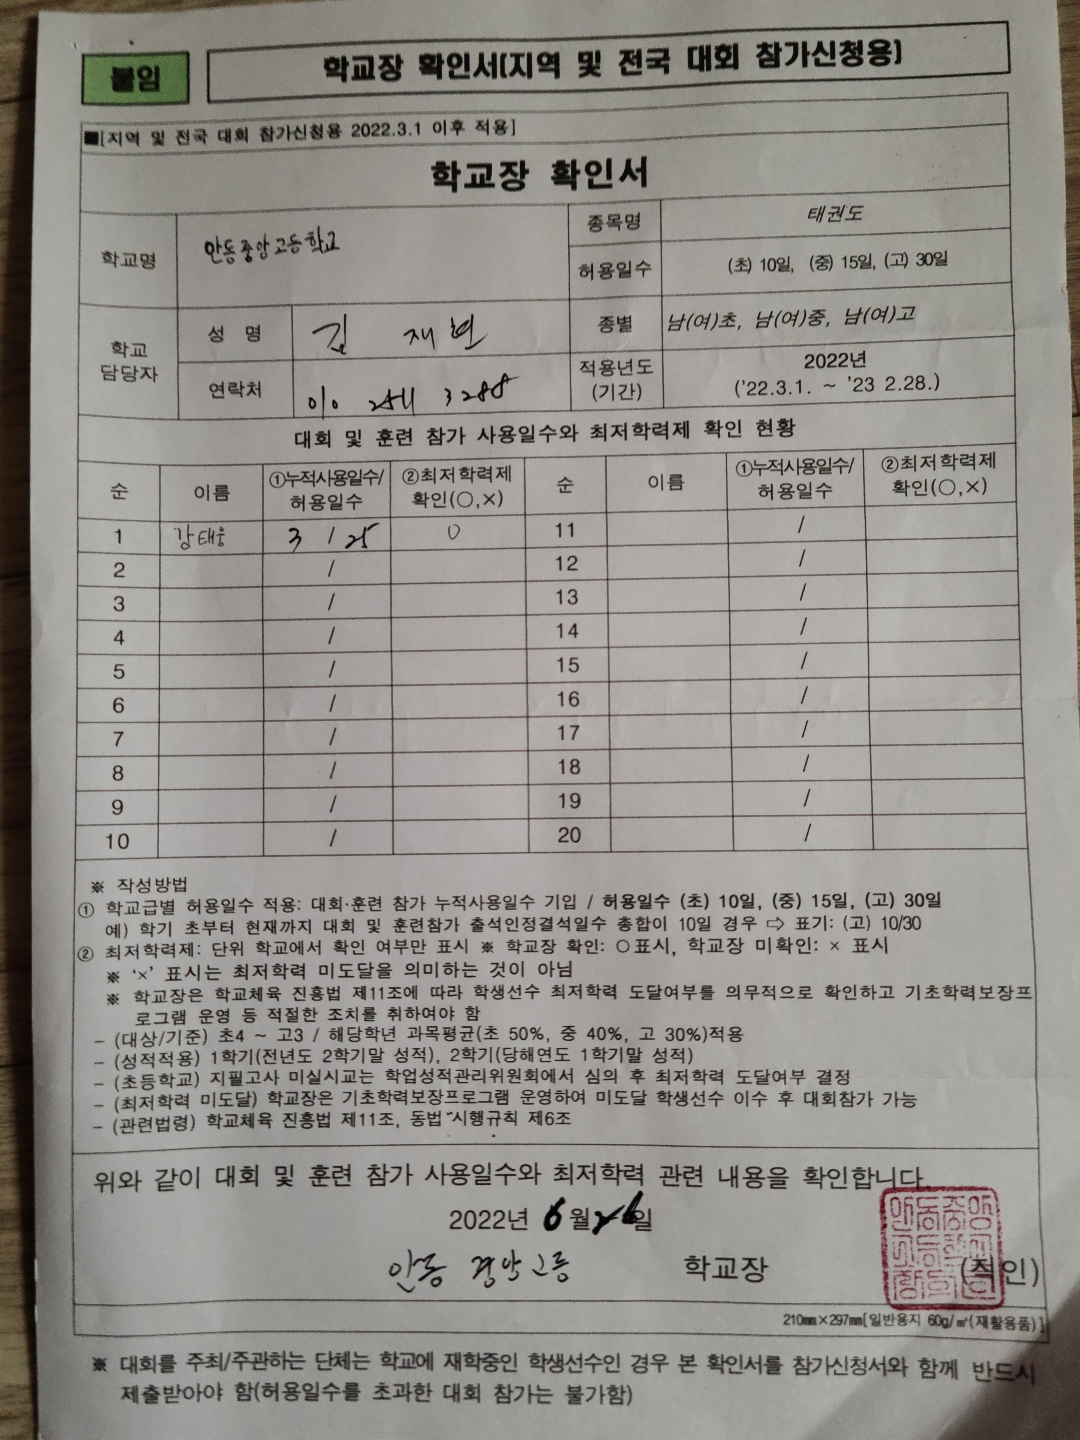 붙임
학교장 확인서(지역 및 전국 대회 참가신청용)
■[지역 및 전국 대회 참가신청용 2022.3.1 이후 적용]
학교장 확인서
학교명 안동중앙고등학교 종목명 태권도
허용일수 (초) 10일, (중) 15일, (고) 30일
학교 담당자 성 명 김 재현 종별 남(여)초, 남(여)중, 남(여)고
연락처 010 2511 3288 적용년도 (기간) 2022년 ('22.3.1. ~ '23 2.28.)
대회 및 훈련 참가 사용일수와 최저학력제 확인 현황
순 이름 ①누적사용일수/허용일수 ②최저학력제 확인(○,×) 순 이름 ①누적사용일수/허용일수 ②최저학력제 확인(○,×)
1 강태웅 3 / 25 ○ 11 /
2 / 12 /
3 / 13 /
4 / 14 /
5 / 15 /
6 / 16 /
7 / 17 /
8 / 18 /
9 / 19 /
10 / 20 /
※ 작성방법
① 학교급별 허용일수 적용: 대회·훈련 참가 누적사용일수 기입 / 허용일수 (초) 10일, (중) 15일, (고) 30일
예) 학기 초부터 현재까지 대회 및 훈련참가 출석인정결석일수 총합이 10일 경우 ⇨ 표기: (고) 10/30
② 최저학력제: 단위 학교에서 확인 여부만 표시 ※ 학교장 확인: ○표시, 학교장 미확인: × 표시
※ '×' 표시는 최저학력 미도달을 의미하는 것이 아님
※ 학교장은 학교체육 진흥법 제11조에 따라 학생선수 최저학력 도달여부를 의무적으로 확인하고 기초학력보장프
로그램 운영 등 적절한 조치를 취하여야 함
- (대상/기준) 초4 ~ 고3 / 해당학년 과목평균(초 50%, 중 40%, 고 30%)적용
- (성적적용) 1학기(전년도 2학기말 성적), 2학기(당해연도 1학기말 성적)
- (초등학교) 지필고사 미실시교는 학업성적관리위원회에서 심의 후 최저학력 도달여부 결정
- (최저학력 미도달) 학교장은 기초학력보장프로그램 운영하여 미도달 학생선수 이수 후 대회참가 가능
- (관련법령) 학교체육 진흥법 제11조, 동법 시행규칙 제6조
위와 같이 대회 및 훈련 참가 사용일수와 최저학력 관련 내용을 확인합니다.
2022년 6월 26일
안동 중앙고등 학교장 (직인)
210㎜×297㎜[일반용지 60g/㎡(재활용품)]
※ 대회를 주최/주관하는 단체는 학교에 재학중인 학생선수인 경우 본 확인서를 참가신청서와 함께 반드시
제출받아야 함(허용일수를 초과한 대회 참가는 불가함)